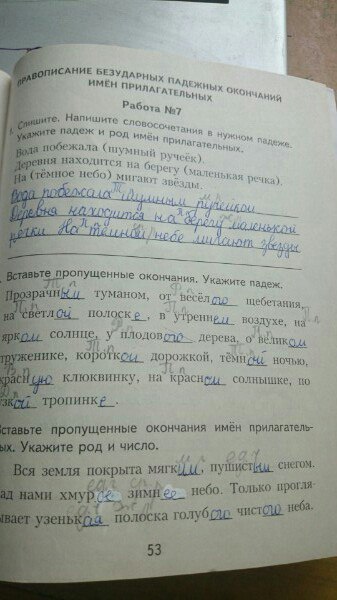 ПРАВОПИСАНИЕ БЕЗУДАРНЫХ ПАДЕЖНЫХ ОКОНЧАНИЙ
ИМЁН ПРИЛАГАТЕЛЬНЫХ
Работа №7
Спишите. Напишите словосочетания в нужном падеже.
Укажите падеж и род имён прилагательных.
Вода побежала (шумный ручеёк).
Деревня находится на берегу (маленькая речка).
На (тёмное небо) мигают звёзды.
Вода побежала шумным ручейком.
Деревня находится на берегу маленькой
речки. На тёмном небе мигают звёзды
Вставьте пропущенные окончания. Укажите падеж.
Прозрачным туманом, от весёлого щебетания,
на светлой полоске, в утреннем воздухе, на
ярком солнце, у плодового дерева, о великом
труженике, короткой дорожкой, тёмной ночью,
красную клюквинку, на красном солнышке, по
узкой тропинке.
Вставьте пропущенные окончания имён прилагатель-
ных. Укажите род и число.
Вся земля покрыта мягким, пушистым снегом.
Над нами хмурое зимнее небо. Только прогля-
дывает узенькая полоска голубого чистого неба.
53